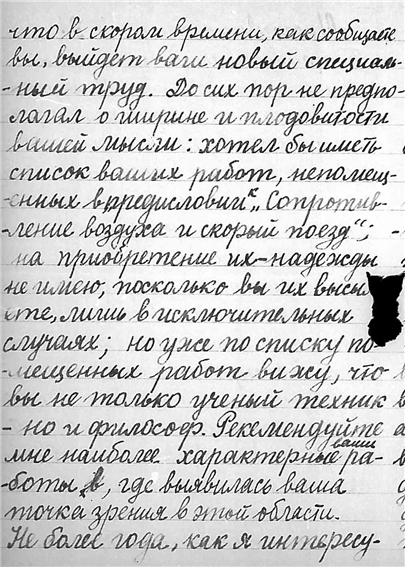 что в скором времени, как сообщаете
вы, выйдет ваш новый специаль-
-ный труд. До сих пор не предпо-
лагал о ширине и плодовитости
вашей мысли: хотел бы иметь
список ваших работ, непомещ-
-енных в „предисловии" к „Сопротив-
-ление воздуха и скорый поезд";
на приобретение их – надежды
не имею, посколько вы их высы
ете, лишь в исключительных
случаях; но уже по списку по
-мещенных работ вижу, что
вы не только ученый техник
- но и философ. Рекемендуйте
мне наиболее характерные ваши ра-
-боты, в, где выявилась ваша
точка зрения в этой области.
Не более года, как я интересу-